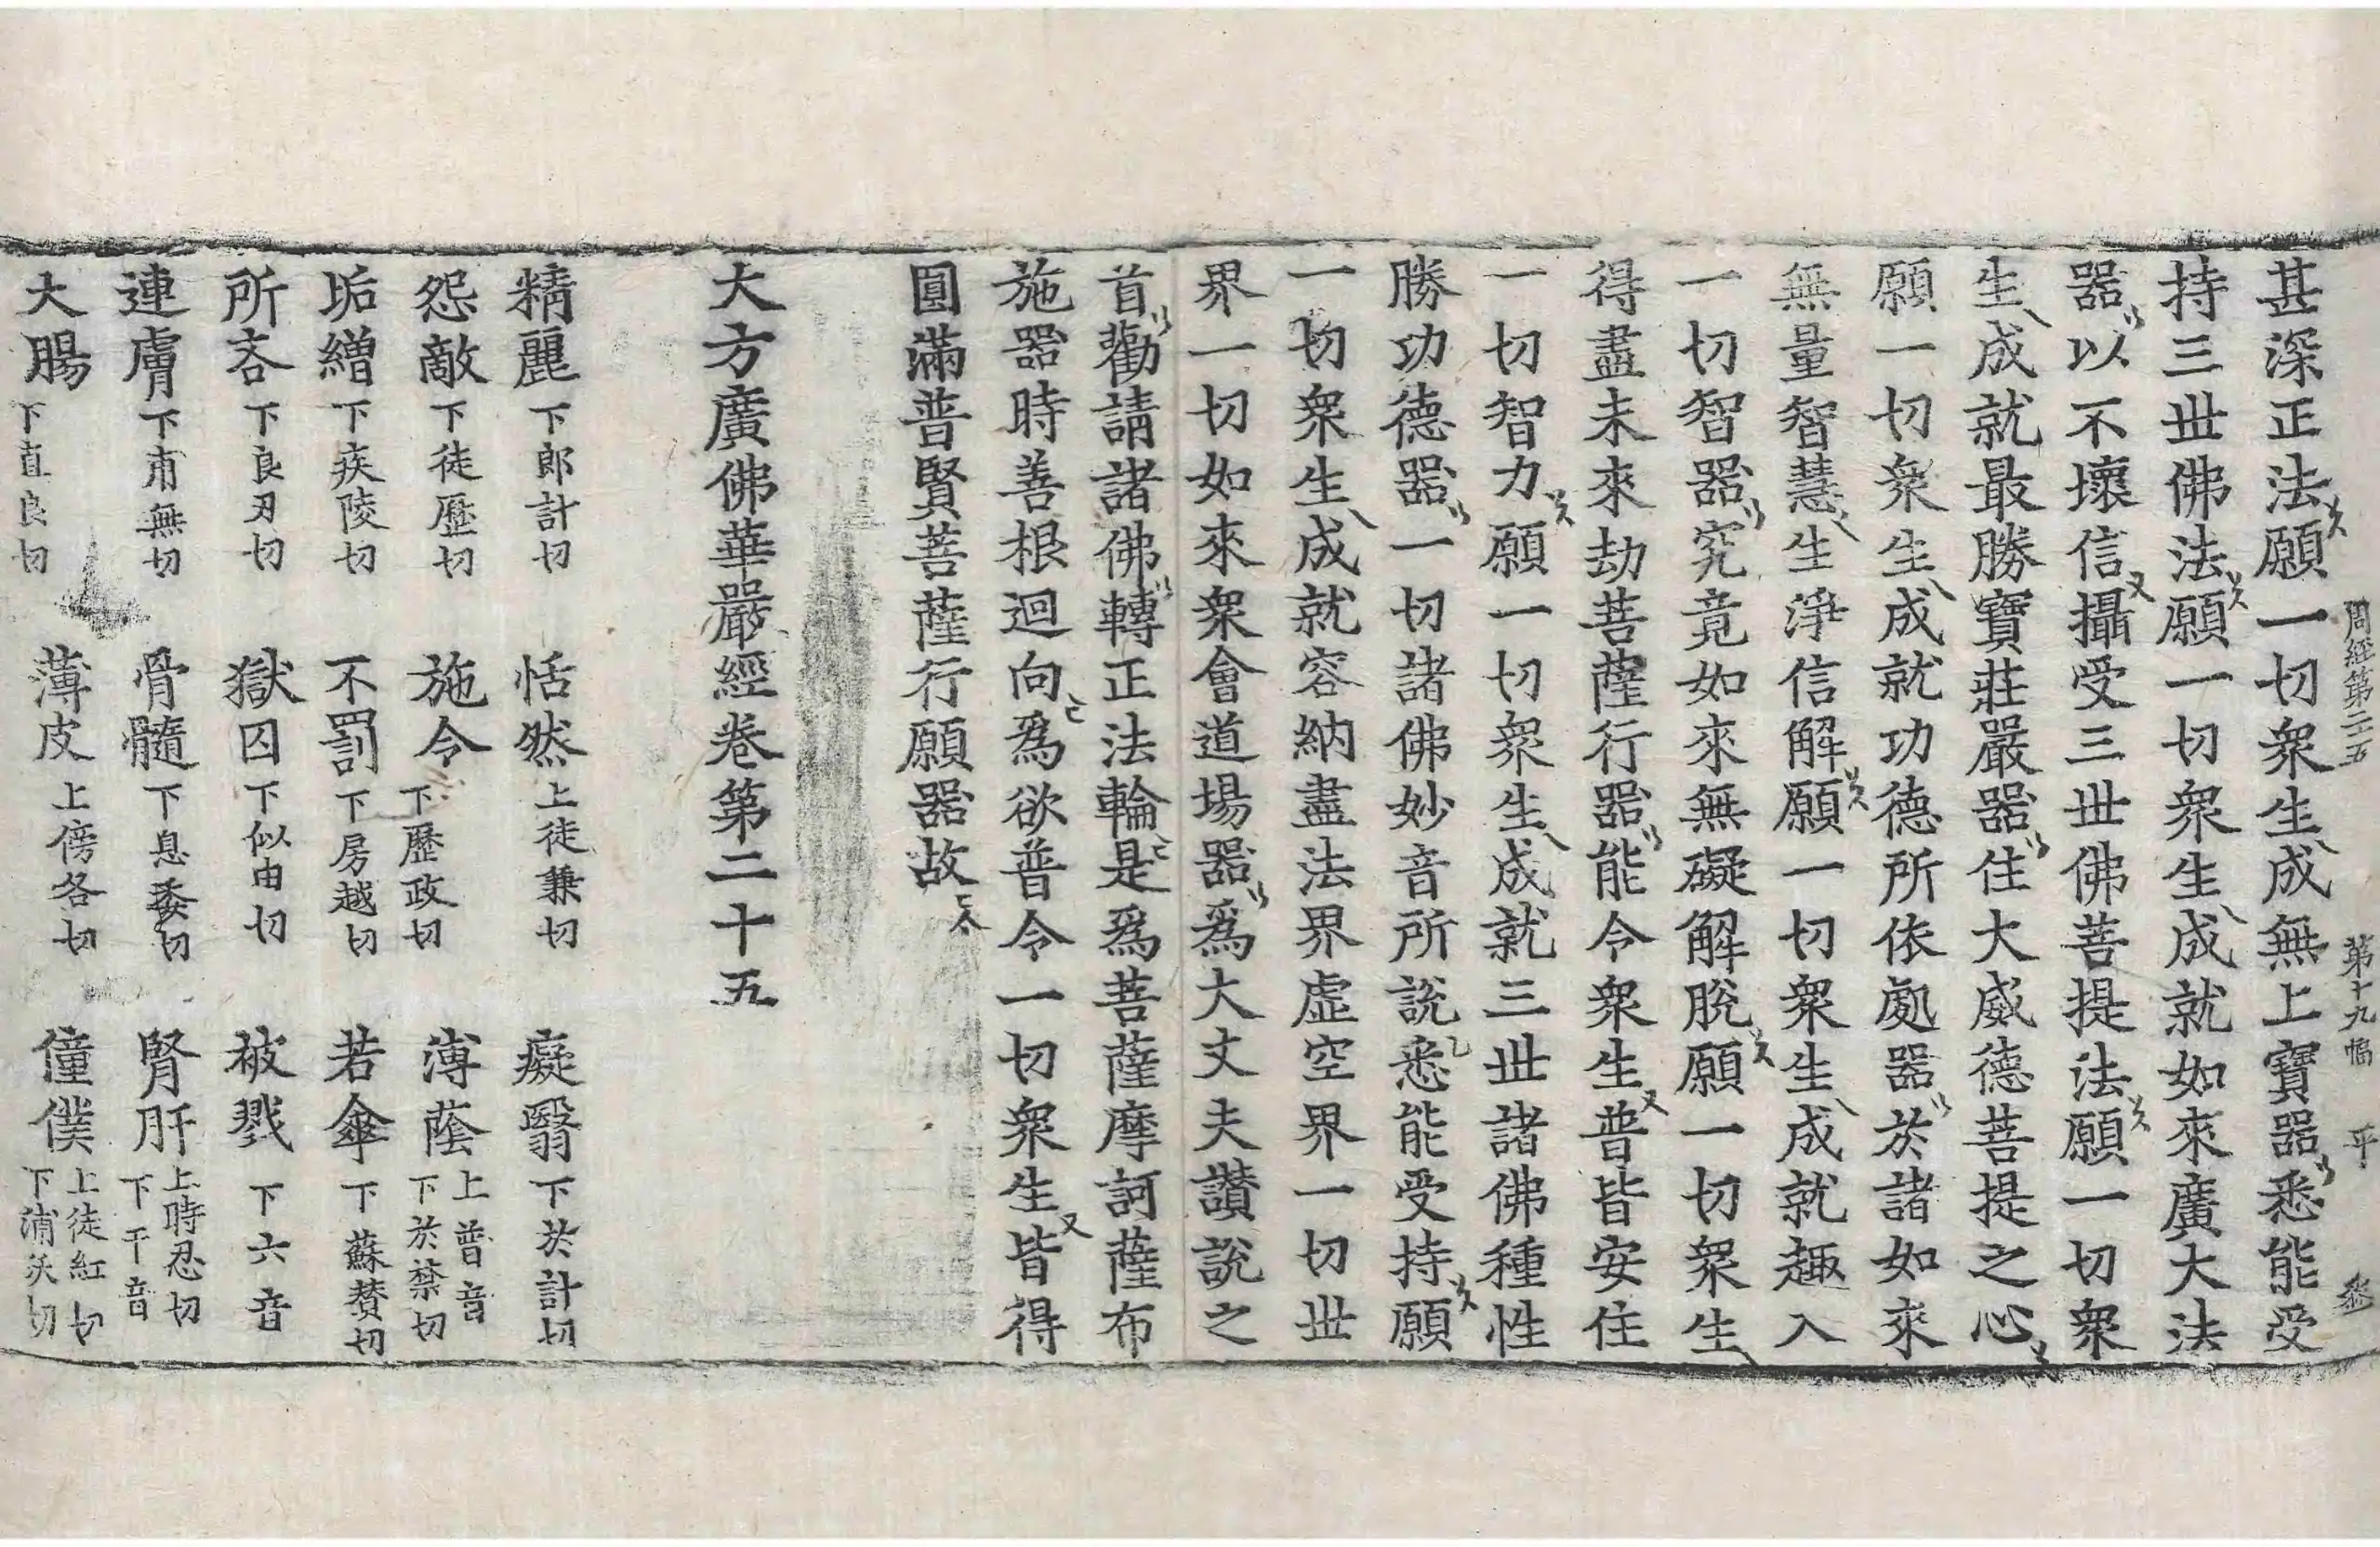 周經第二五 第十九幅 平
甚深正法願一切衆生成無上寶器悉能受
持三世佛法願一切衆生成就如來廣大法
器以不壞信攝受三世佛菩提法願一切衆
生成就最勝寶莊嚴器住大威德菩提之心
願一切衆生成就功德所依處器於諸如來
無量智慧生淨信解願一切衆生成就趣入
一切智器究竟如來無礙解脫願一切衆生
得盡未來劫菩薩行器能令衆生普皆安住
一切智力願一切衆生成就三世諸佛種性
勝功德器一切諸佛妙音所說悉能受持願
一切衆生成就容納盡法界虛空界一切世
界一切如來衆會道場器爲大丈夫讚說之
首勸請諸佛轉正法輪是爲菩薩摩訶薩布
施器時善根迴向爲欲普令一切衆生皆得
圓滿普賢菩薩行願器故
大方廣佛華嚴經卷第二十五
精麗下郎計切 恬然上徒兼切 癡翳下於計切
怨敵下徒歷切 施令下歷政切 溥蔭上普音下於禁切
垢繒下疾陵切 不罰下房越切 若傘下蘇賛切
所吝下良刃切 獄囚下似由切 被戮下六音
連膚下甫無切 骨髓下息委切 腎肝上時忍切下干音
大腸下直良切 薄皮上傍各切 僮僕上徒紅切下蒲沃切